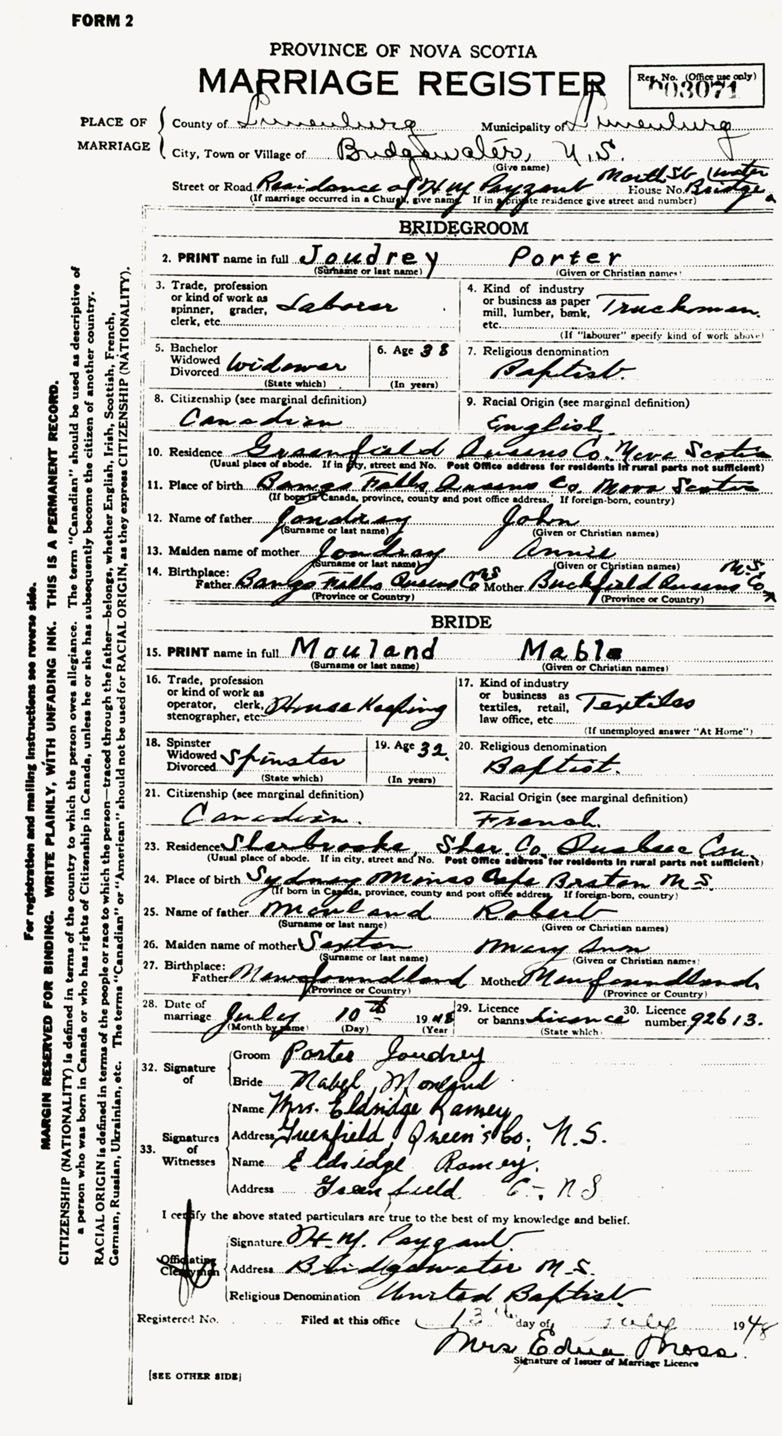 FORM 2
PROVINCE OF NOVA SCOTIA
MARRIAGE REGISTER
Reg. No. (Office use only)
003071
PLACE OF MARRIAGE
County of Lunenburg Municipality of Lunenburg
City, Town or Village of Bridgewater, N.S.
(Give name)
Street or Road Residence of H M Paysant North St House No. Bridgewater
(If marriage occurred in a Church, give name If in a private residence give street and number)
BRIDEGROOM
2. PRINT name in full Joudrey Porter
(Surname or last name) (Given or Christian names)
3. Trade, profession or kind of work as spinner, grader, clerk, etc. Laborer
4. Kind of industry or business as paper mill, lumber, bank, etc. Truckman.
(If "labourer" specify kind of work above)
5. Bachelor Widowed Divorced Widower
(State which)
6. Age 38
(In years)
7. Religious denomination Baptist.
8. Citizenship (see marginal definition) Canadian
9. Racial Origin (see marginal definition) English.
10. Residence Greenfield Queens Co. Nova Scotia
(Usual place of abode. If in city, street and No. Post Office address for residents in rural parts not sufficient)
11. Place of birth Bangs Falls Queens Co. Nova Scotia
(If born in Canada, province, county and post office address. If foreign-born, country)
12. Name of father Joudrey John
(Surname or last name) (Given or Christian names)
13. Maiden name of mother Joudrey Annie
(Surname or last name) (Given or Christian names)
14. Birthplace: Father Bangs Falls Queens Co N S Mother Buckfield Queens Co N.S.
(Province or Country) (Province or Country)
BRIDE
15. PRINT name in full Mouland Mable
(Surname or last name) (Given or Christian names)
16. Trade, profession or kind of work as operator, clerk, stenographer, etc. House Keeping
17. Kind of industry or business as textiles, retail, law office, etc. Textiles
(If unemployed answer "At Home")
18. Spinster Widowed Divorced Spinster
(State which)
19. Age 32.
(In years)
20. Religious denomination Baptist.
21. Citizenship (see marginal definition) Canadian.
22. Racial Origin (see marginal definition) French.
23. Residence Sherbrooke, Sher. Co. Quebec Can.
(Usual place of abode. If in city, street and No. Post Office address for residents in rural parts not sufficient)
24. Place of birth Sydney Mines Cape Breton N S.
(If born in Canada, province, county and post office address If foreign-born, country)
25. Name of father Robert
(Surname or last name) (Given or Christian names)
26. Maiden name of mother Sexton Mary Ann
(Surname or last name) (Given or Christian names)
27. Birthplace: Father Newfoundland Mother Newfoundland
(Province or Country) (Province or Country)
28. Date of marriage July 10th 1948
(Month by name) (Day) (Year)
29. Licence or banns Licence
(State which)
30. Licence number 92613.
32. Signature of
Groom Porter Joudrey
Bride Mabel Mouland
33. Signatures of Witnesses
Name Mrs. Eldridge Ramey
Address Greenfield, Queen's Co; N.S.
Name Eldridge Ramey.
Address Greenfield N S
I certify the above stated particulars are true to the best of my knowledge and belief.
Officiating Clergyman
Signature H. M. Paysant
Address Bridgewater N.S.
Religious Denomination United Baptist.
Registered No. Filed at this office 13th day of July 1948
Mrs Edna Moss.
Signature of Issuer of Marriage Licence
[SEE OTHER SIDE]
For registration and mailing instructions see reverse side.
MARGIN RESERVED FOR BINDING. WRITE PLAINLY, WITH UNFADING INK. THIS IS A PERMANENT RECORD.
CITIZENSHIP (NATIONALITY) is defined in terms of the country to which the person owes allegiance. The term "Canadian" should be used as descriptive of
a person who was born in Canada or who has rights of Citizenship in Canada, unless he or she has subsequently become the citizen of another country.
RACIAL ORIGIN is defined in terms of the people or race to which the person—traced through the father—belongs, whether English, Irish, Scottish, French,
German, Russian, Ukrainian, etc. The terms "Canadian" or "American" should not be used for RACIAL ORIGIN, as they express CITIZENSHIP (NATIONALITY).